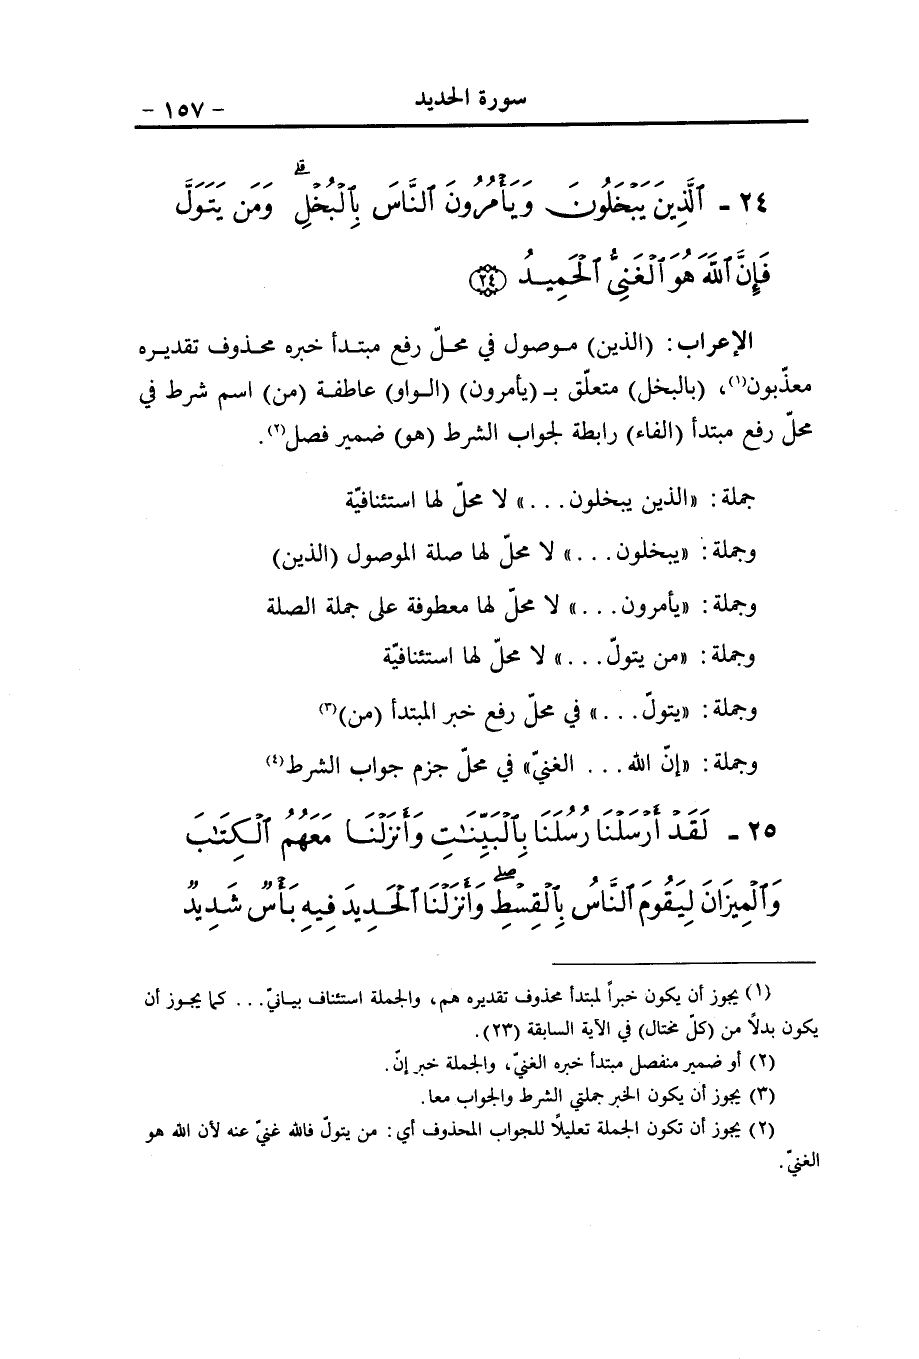 سورة الحديد - ١٥٧ -
٢٤ - ٱلَّذِينَ يَبْخَلُونَ وَيَأْمُرُونَ ٱلنَّاسَ بِٱلْبُخْلِ ۗ وَمَن يَتَوَلَّ
فَإِنَّ ٱللَّهَ هُوَ ٱلْغَنِىُّ ٱلْحَمِيدُ ﴿٢٤﴾
الإعراب: (الذين) موصول في محلّ رفع مبتدأ خبره محذوف تقديره
معذّبون(١)، (بالبخل) متعلّق بـ (يأمرون) (الواو) عاطفة (من) اسم شرط في
محلّ رفع مبتدأ (الفاء) رابطة لجواب الشرط (هو) ضمير فصل(٢).
جملة: «الذين يبخلون...» لا محلّ لها استئنافيّة
وجملة: «يبخلون...» لا محلّ لها صلة الموصول (الذين)
وجملة: «يأمرون...» لا محلّ لها معطوفة على جملة الصلة
وجملة: «من يتولّ...» لا محلّ لها استئنافيّة
وجملة: «يتولّ...» في محلّ رفع خبر المبتدأ (من)(٣)
وجملة: «إنّ الله... الغنيّ» في محلّ جزم جواب الشرط(٤)
٢٥ - لَقَدْ أَرْسَلْنَا رُسُلَنَا بِٱلْبَيِّنَٰتِ وَأَنزَلْنَا مَعَهُمُ ٱلْكِتَٰبَ
وَٱلْمِيزَانَ لِيَقُومَ ٱلنَّاسُ بِٱلْقِسْطِ ۖ وَأَنزَلْنَا ٱلْحَدِيدَ فِيهِ بَأْسٌ شَدِيدٌ
(١) يجوز أن يكون خبراً لمبتدأ محذوف تقديره هم، والجملة استئناف بيانيّ... كما يجوز أن
يكون بدلاً من (كلّ مختال) في الآية السابقة (٢٣).
(٢) أو ضمير منفصل مبتدأ خبره الغنيّ، والجملة خبر إنّ.
(٣) يجوز أن يكون الخبر جملتي الشرط والجواب معا.
(٢) يجوز أن تكون الجملة تعليلاً للجواب المحذوف أي: من يتولّ فالله غنيّ عنه لأن الله هو
الغنيّ.